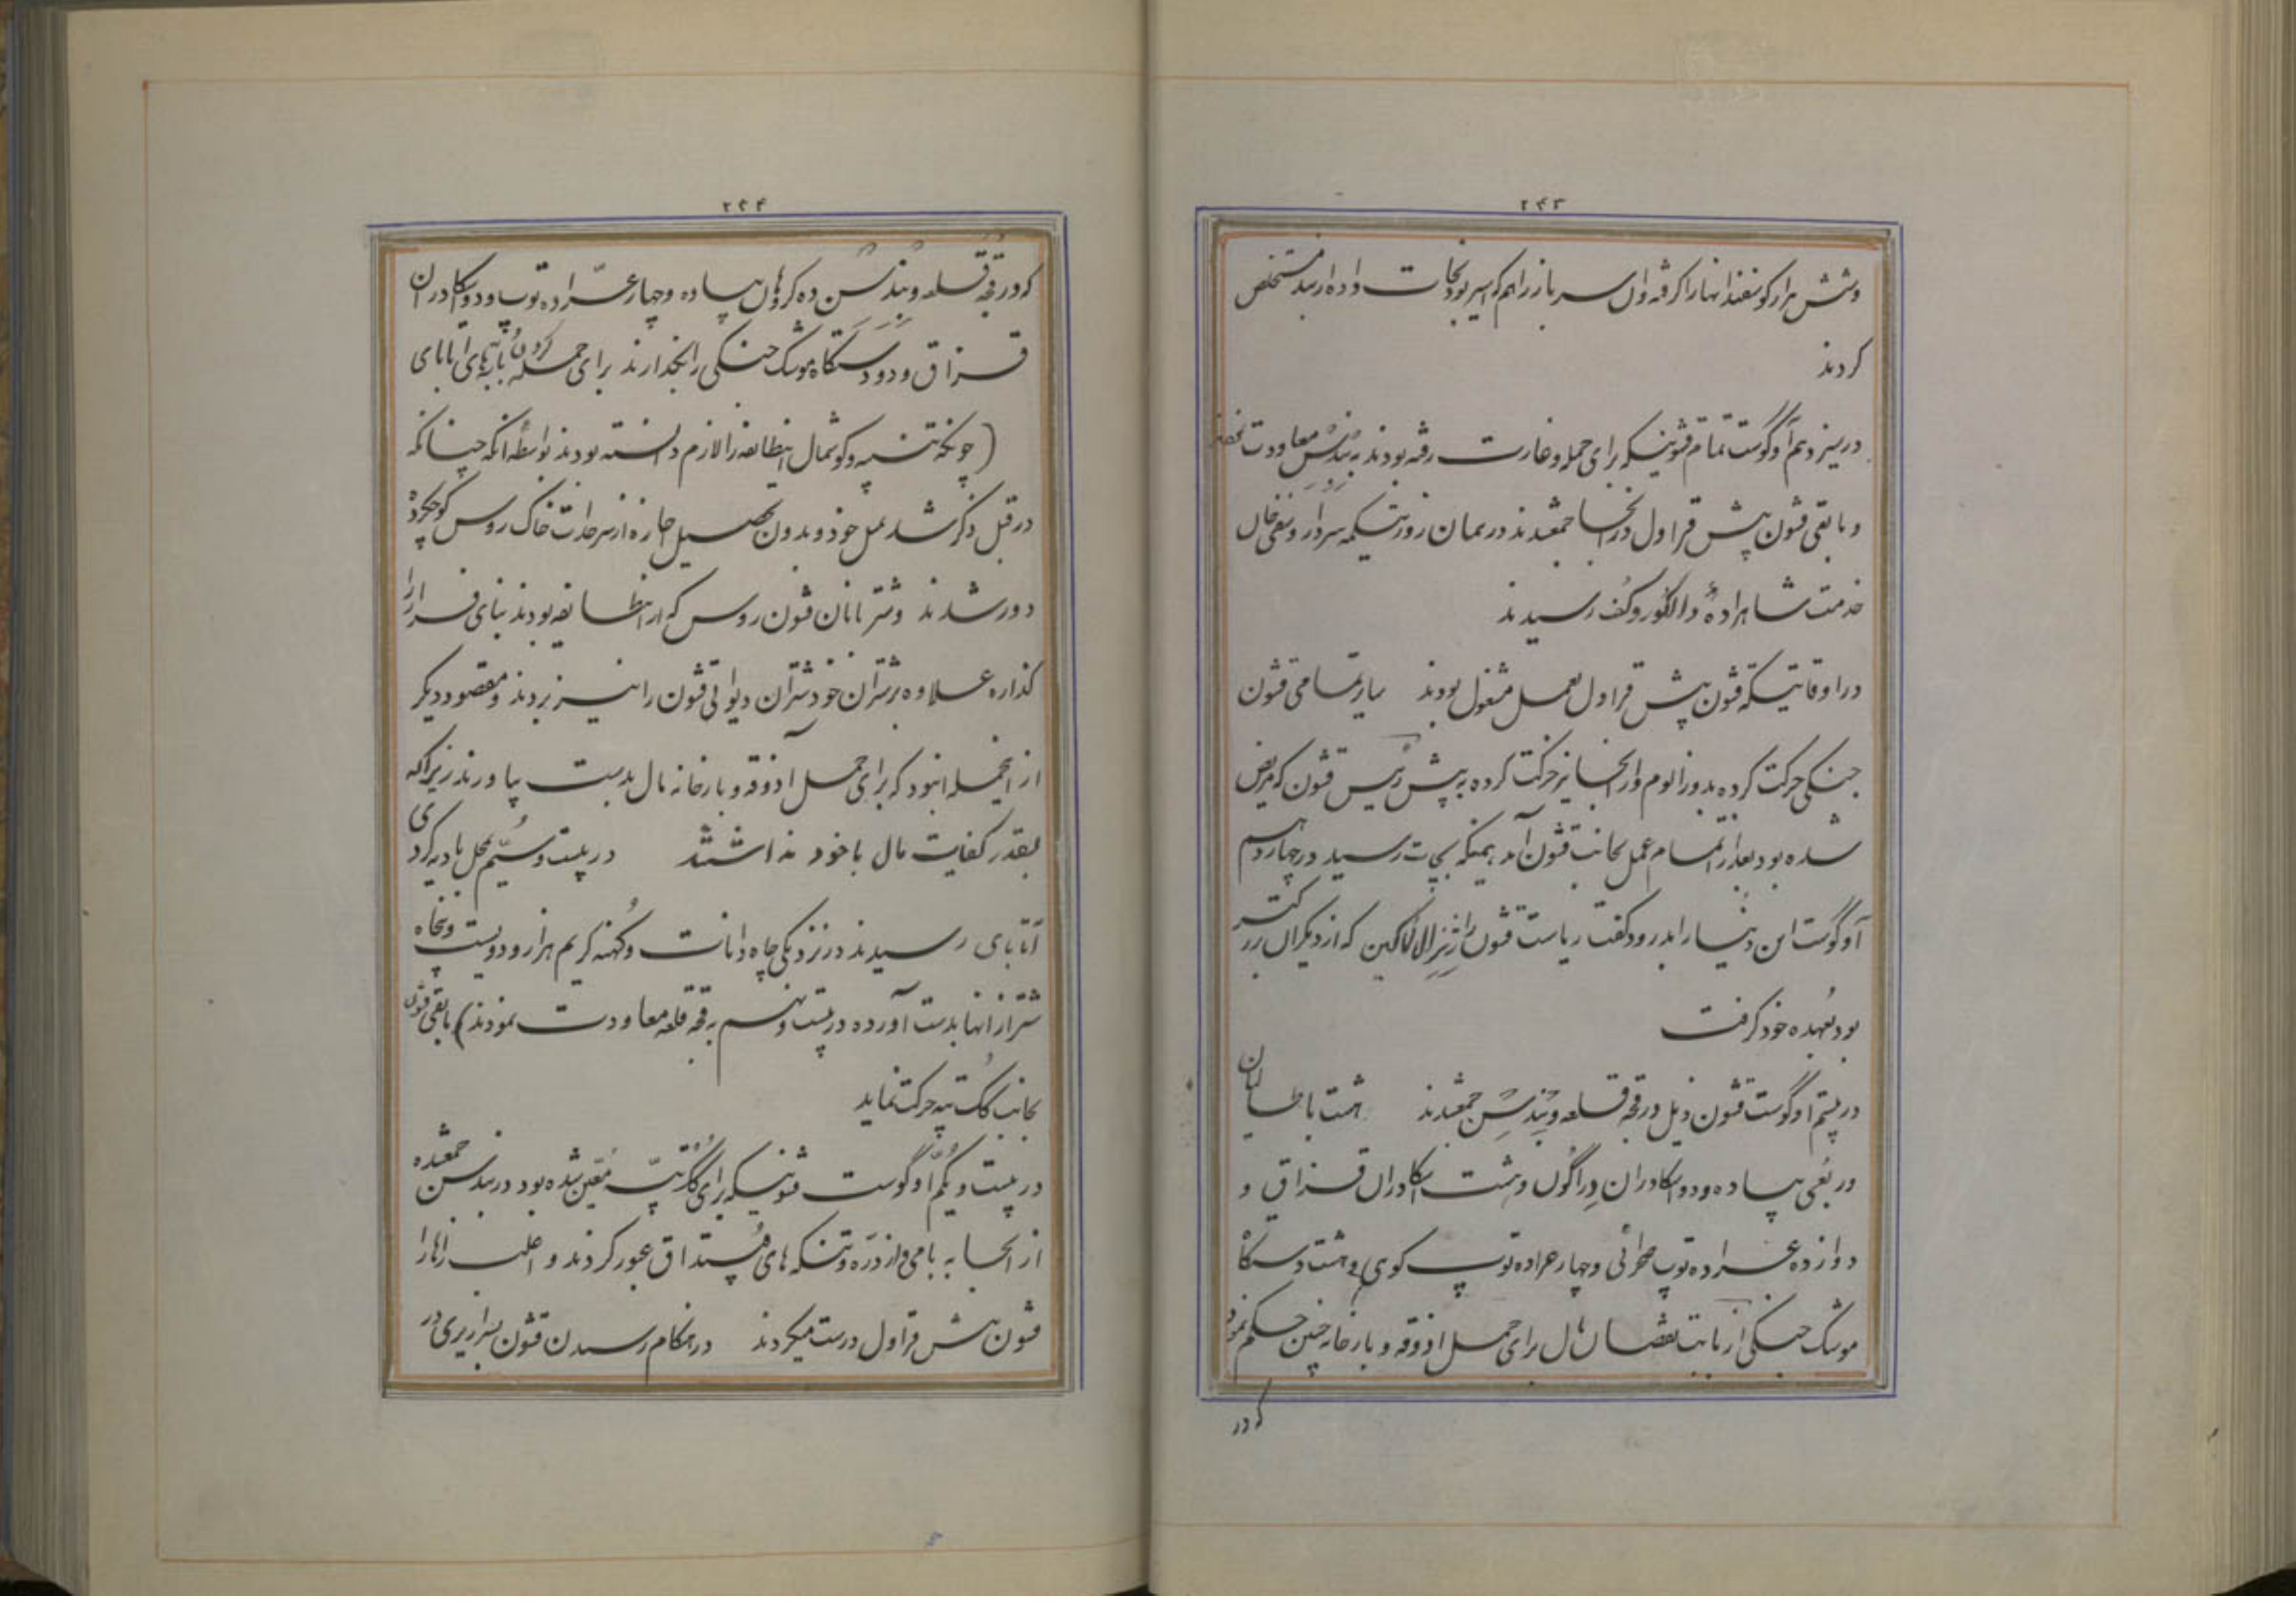 ۲۴۳
وشش هزار گوسفند انها را گرفته وان سرباز را هم که اسیر بود نجات داده از بند مستخلص
کردند
در سیزدهم آوگوست تمام قشونیکه برای حمله و غارت رفته بودند به بندسن معاودت
و باقی قشون پیش قراول در انجا جمع شدند در همان روز تیکمه سردار و صفی خان
خدمت شاهزاده دالگوروکف رسیدند
در اوقاتیکه قشون پیش قراول بعمل مشغول بودند سایر تمامی قشون
جنگی حرکت کرده بدوزالوم و از انجا نیز حرکت کرده به پیش رئیس قشون که مریض
شده بود بعد از اتمام عمل بجانب قشون آمد همینکه بچات رسید در چهاردهم
آوگوست این دنیا را بدرود گفت ریاست قشون را ژنرال لاماکین که از دیگران بزرگتر
بود بعهده خود گرفت
در بیستم اوگوست قشون ذیل در قجه قلعه و بندسن جمع شدند هشت باطالیان
و ربعی پیاده و دو اسکادران دراگون و هشت اسکادران قزاق و
دوازده عراده توپ صحرائی و چهار عراده توپ کوهی و هشت دستگاه
موشک جنگی از بابت نقصان مال برای حمل اذوقه و بارخانه چنین حکم نمود
که در
۲۴۴
که در قجه قلعه و بندسن ده گروهان پیاده و چهار عراده توپ و دو اسکادران
قزاق و دو دستگاه موشک جنگی را نگهدارند برای حمله کردن بابه‌های اتابای
(چونکه تنبیه و گوشمال اینطایفه را لازم دانسته بودند بواسطه انکه چنانکه
در قبل ذکر شد بمیل خود و بدون تحصیل اجازه از سرحدات خاک روس کوچکرده
دور شدند و شتربانان قشون روس که از اینطایفه بودند بنای فرار را
گذارده علاوه بر شتران خود شتران دیوانی قشون را نیز بردند و مقصود دیگر
از این حمله این بود که برای حمل آذوقه و بارخانه مال بدست بیاورند زیراکه
بقدر کفایت مال با خود نداشتند در بیست و سیم بمحل بادیه گردی
آتابای رسیدند در نزدیکی چاه دانات و کهنه کریم هزار و دویست و پنجاه
شتر از انها بدست آورده در بیست و نهم به قجه قلعه معاودت نمودند) باقی قشون
بجانب گگ تپه حرکت نماید
در بیست و یکم آوگوست قشونیکه برای گگ تپه معین شده بود در بندسن جمع شده
از انجا به بامی و از دره و تنگه‌های کپتداق عبور کردند و اغلب راهها را
قشون پیش قراول درست میکردند در هنگام رسیدن قشون بسرازیری در